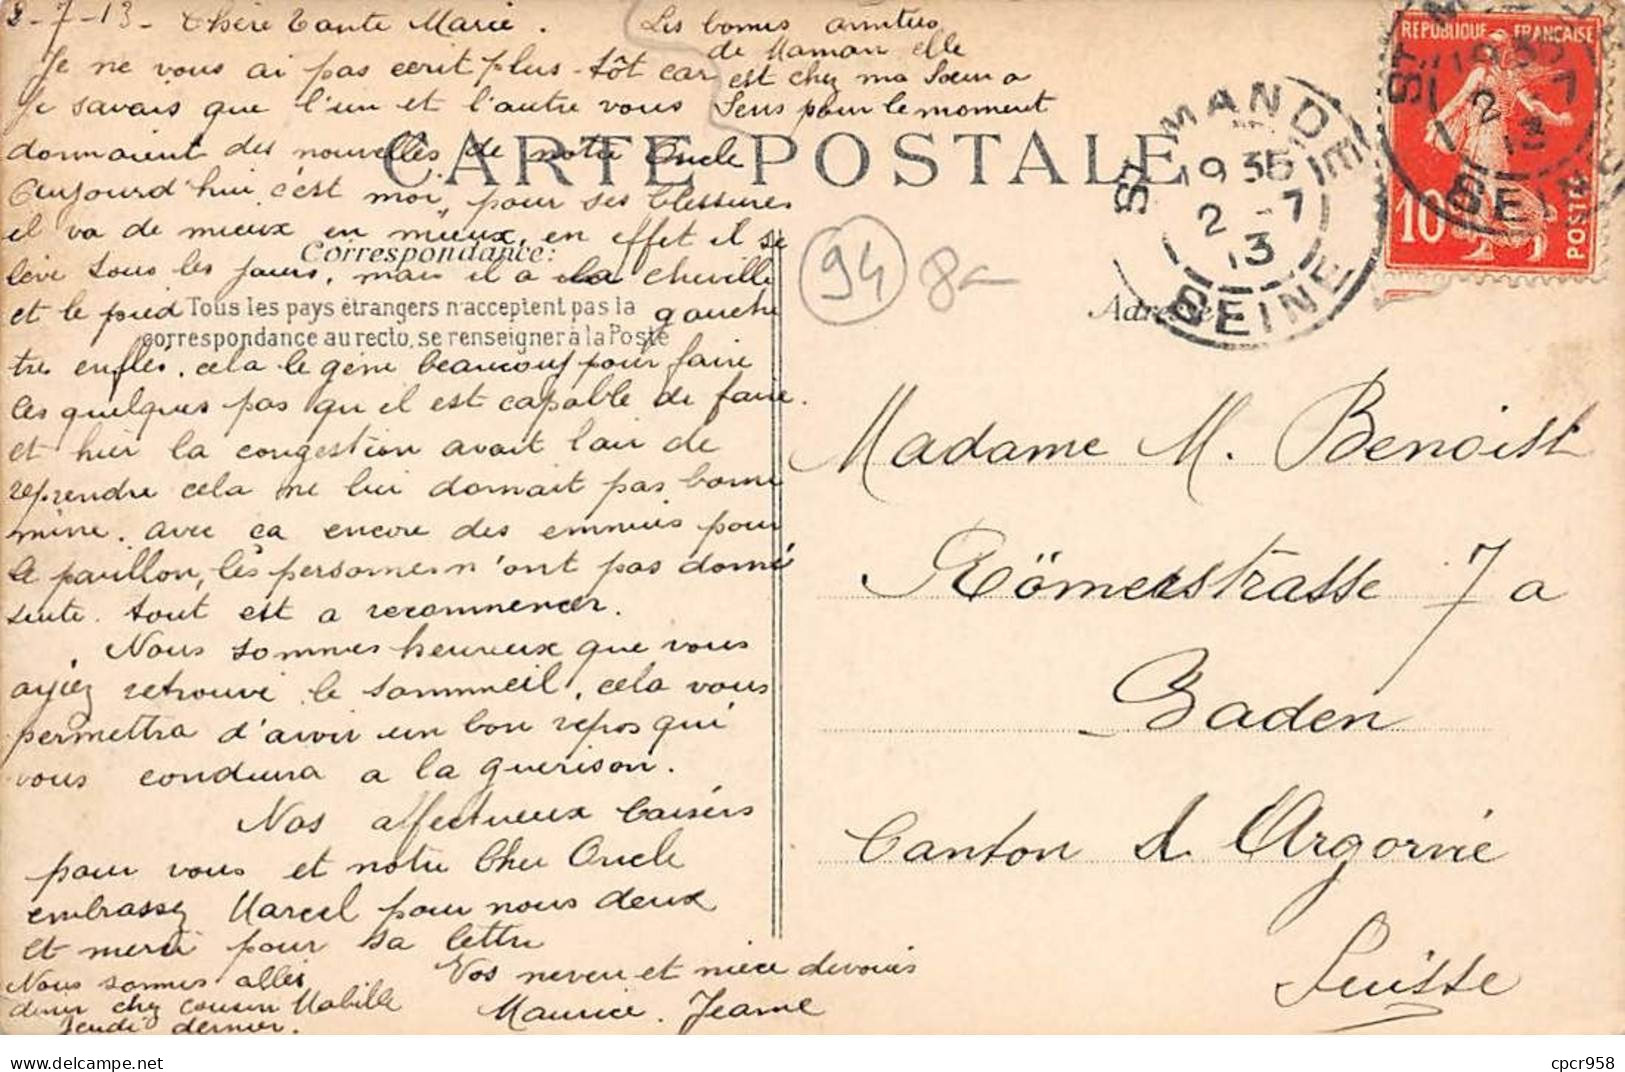 2-7-13 - Chère Tante Marie.
Je ne vous ai pas ecrit plus-tôt car
Je savais que l'un et l'autre vous
donnaient des nouvelles de notre Oncle
Aujourd'hui c'est moi, pour ses blessures
il va de mieux en mieux, en effet il se
lève tous les jours, mais il a la cheville
et le pied gauche
très enflés, cela le gêne beaucoup pour faire
les quelques pas qu'il est capable de faire.
et hier la congestion avait l'air de
reprendre cela ne lui donnait pas bonne
mine. avec ça encore des ennuis pour
le pavillon, les personnes n'ont pas donné
suite. tout est a recommencer.
Nous sommes heureux que vous
ayiez retrouvé le sommeil, cela vous
permettra d'avoir un bon repos qui
vous conduira a la guerison.
Nos affectueux baisers
pour vous et notre Cher Oncle
embrassez Marcel pour nous deux
et merci pour sa lettre
Vos neveu et nièce devoués
Maurice. Jeanne
Nous sommes allés
diner chez cousin Mabille
Jeudi dernier.
Les bonnes amitiés
de Maman elle
est chez ma Sœur a
Sens pour le moment
CARTE POSTALE
Correspondance:
Tous les pays étrangers n'acceptent pas la
correspondance au recto, se renseigner à la Poste
94
8-
Adresse
ST MANDE
19 35
2 -7
13
SEINE
REPUBLIQUE FRANÇAISE
10
POSTES
19 35
2 -7
13
Madame M. Benoist
Römerstrasse 7a
Baden
Canton d'Argovie
Suisse
cpcr958